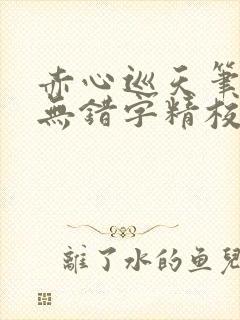 赤心巡天筆
無錯字精校
離了水的鱼兒